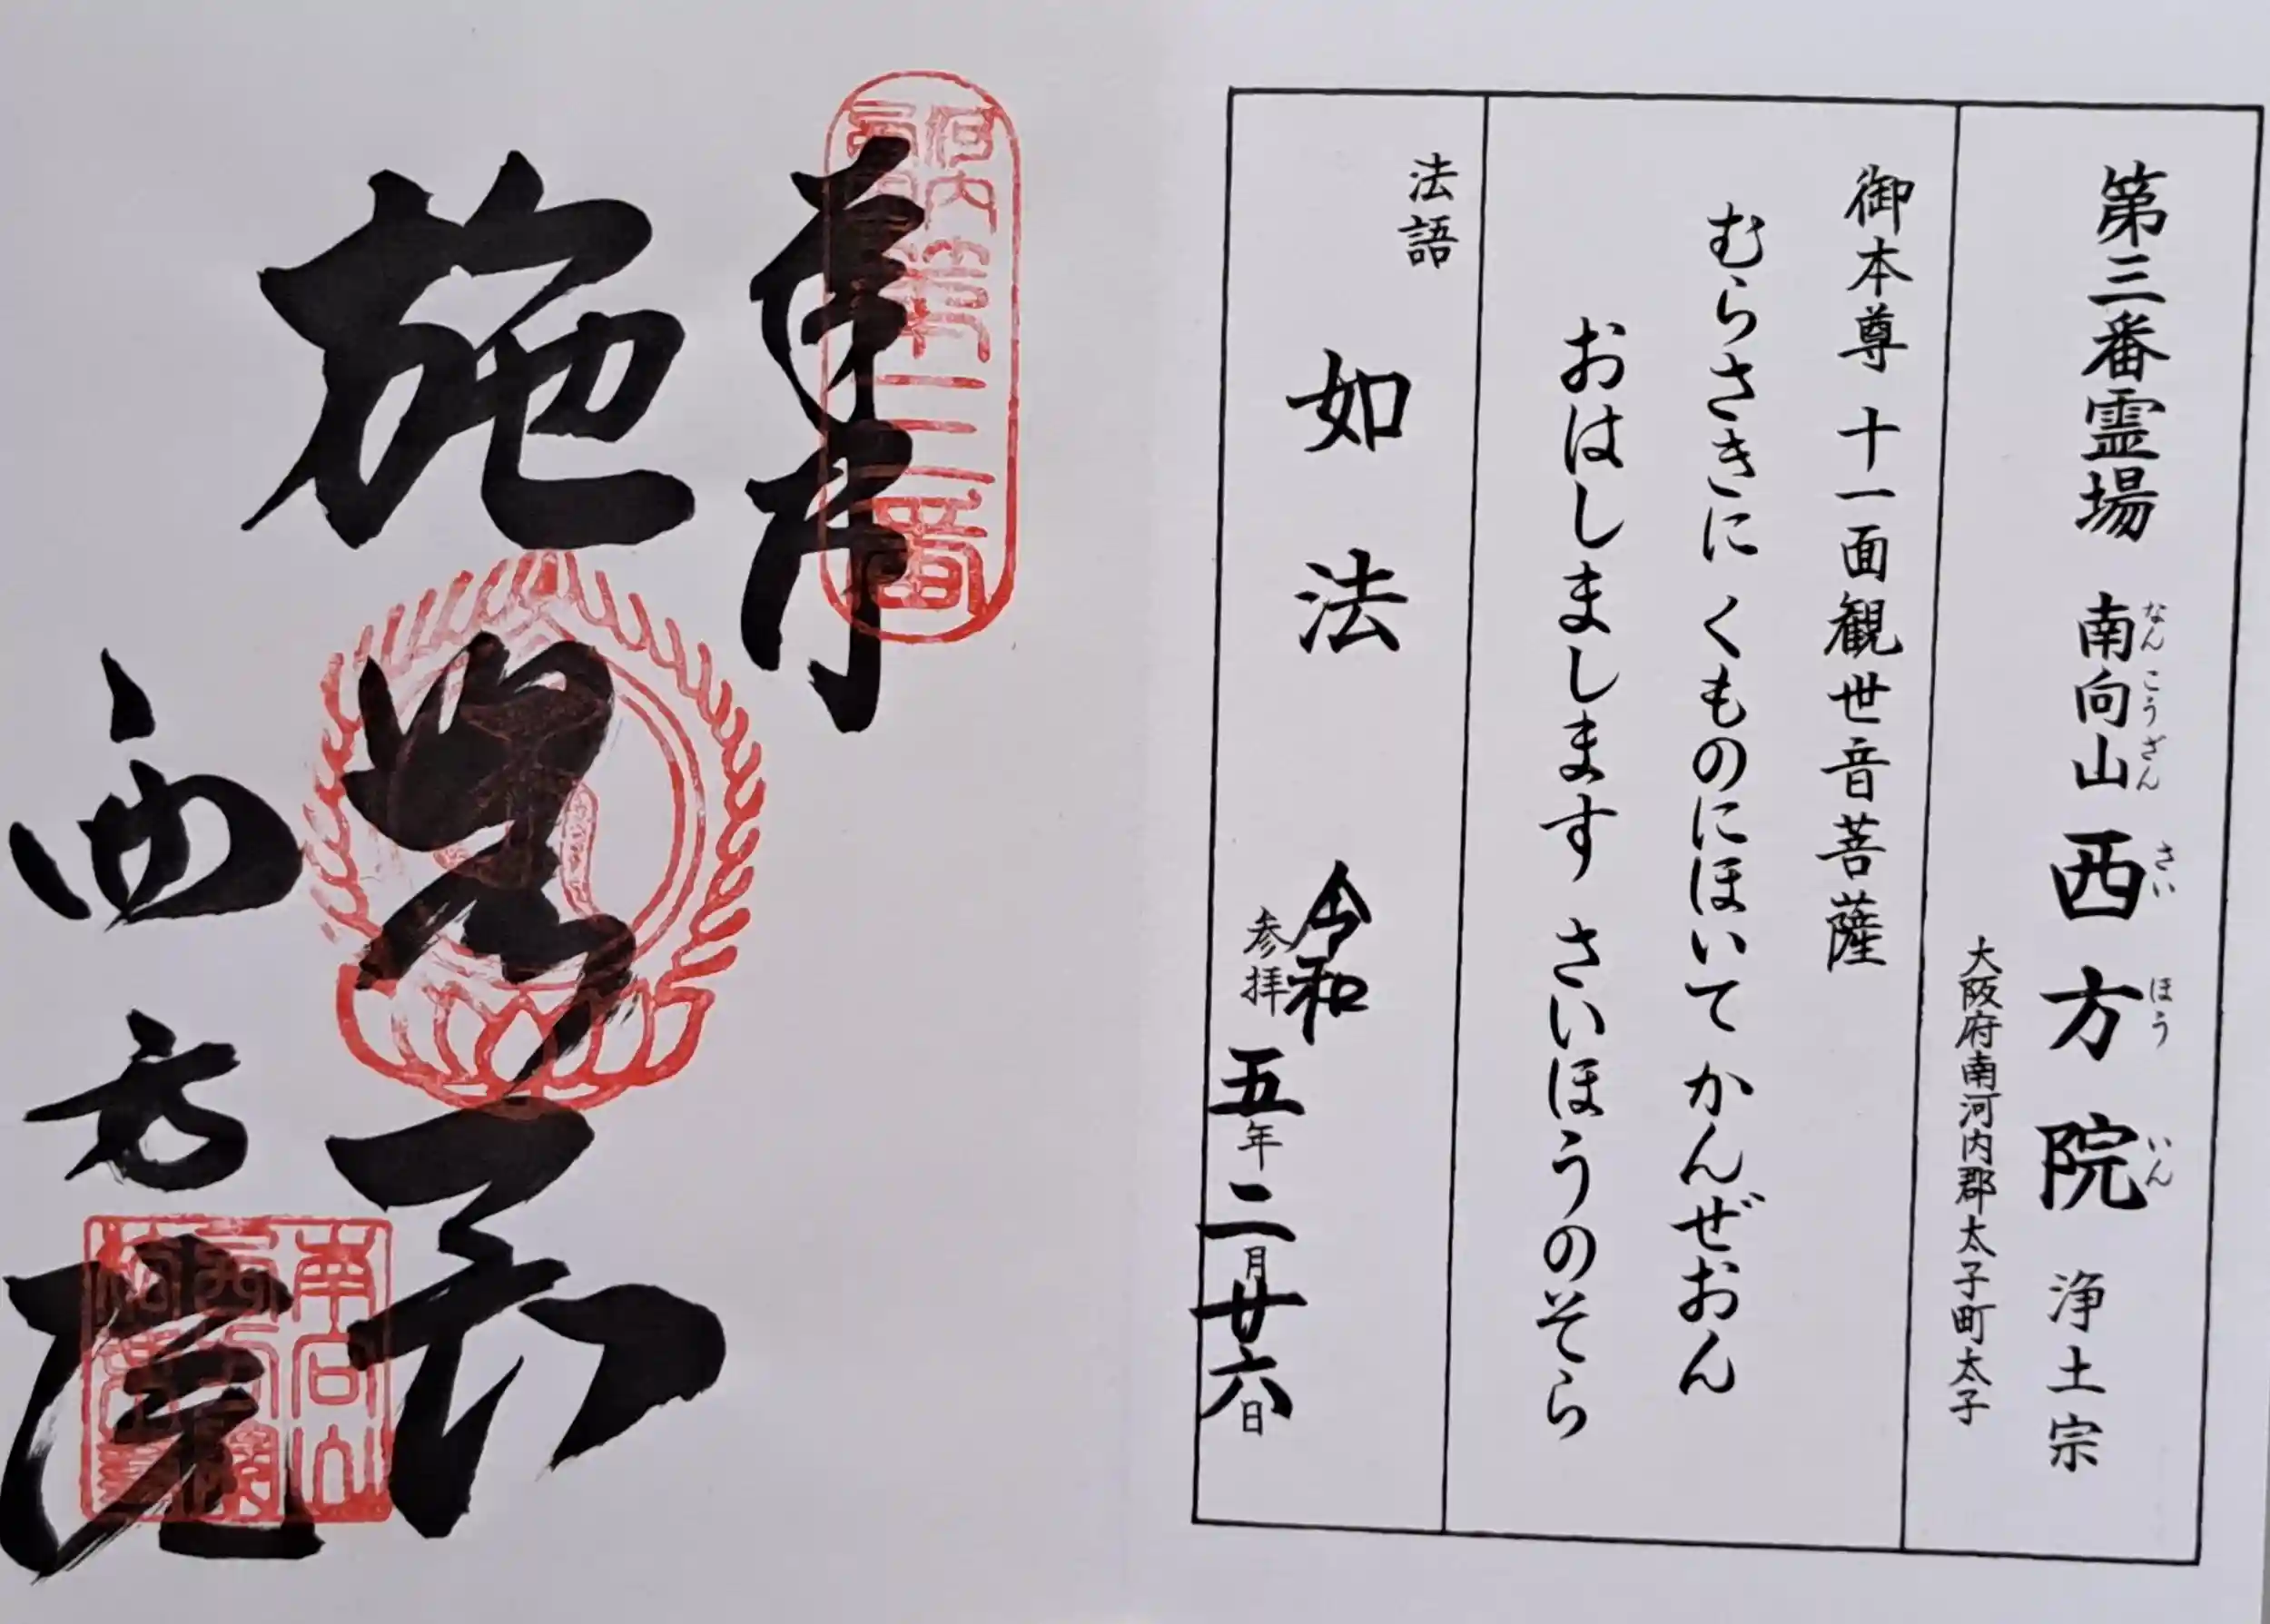 第三番霊場 南向山 西方院 浄土宗
なんこうざん さいほういん
大阪府南河内郡太子町太子
御本尊 十一面観世音菩薩
むらさきに くものにほいて かんぜおん
おはしまします さいほうのそら
法語
如法
令和
参拝 五年二月廿六日
奉拝
河内西国
第三番
施無畏
西方院
南向山